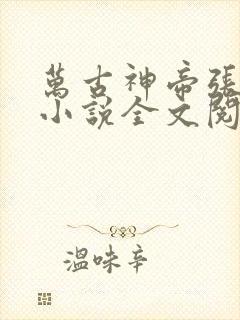 萬古神帝張
小說全文閱
溫味辛